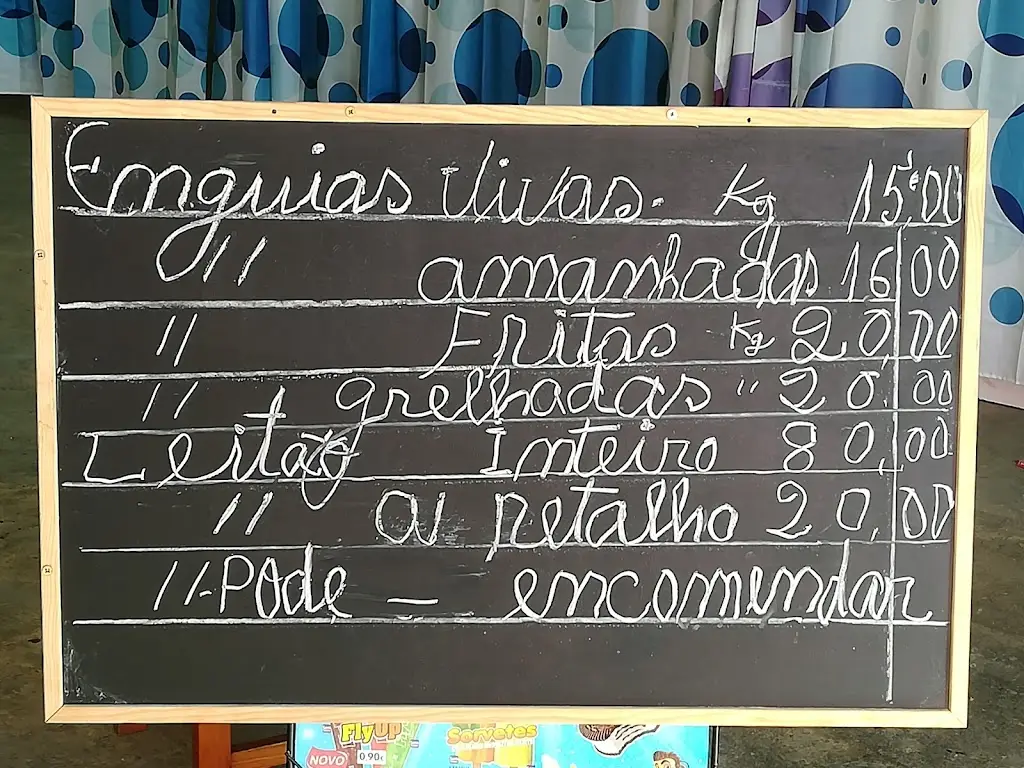 Enguias Vivas. Kg 15€,00
" amanhadas 16,00
" Fritas Kg 20,00
" grelhadas " 20,00
Leitão Inteiro 80,00
" a retalho 20,00
" - Pode - encomendar
FlyUp
Sorvetes
NOVO
0,90€